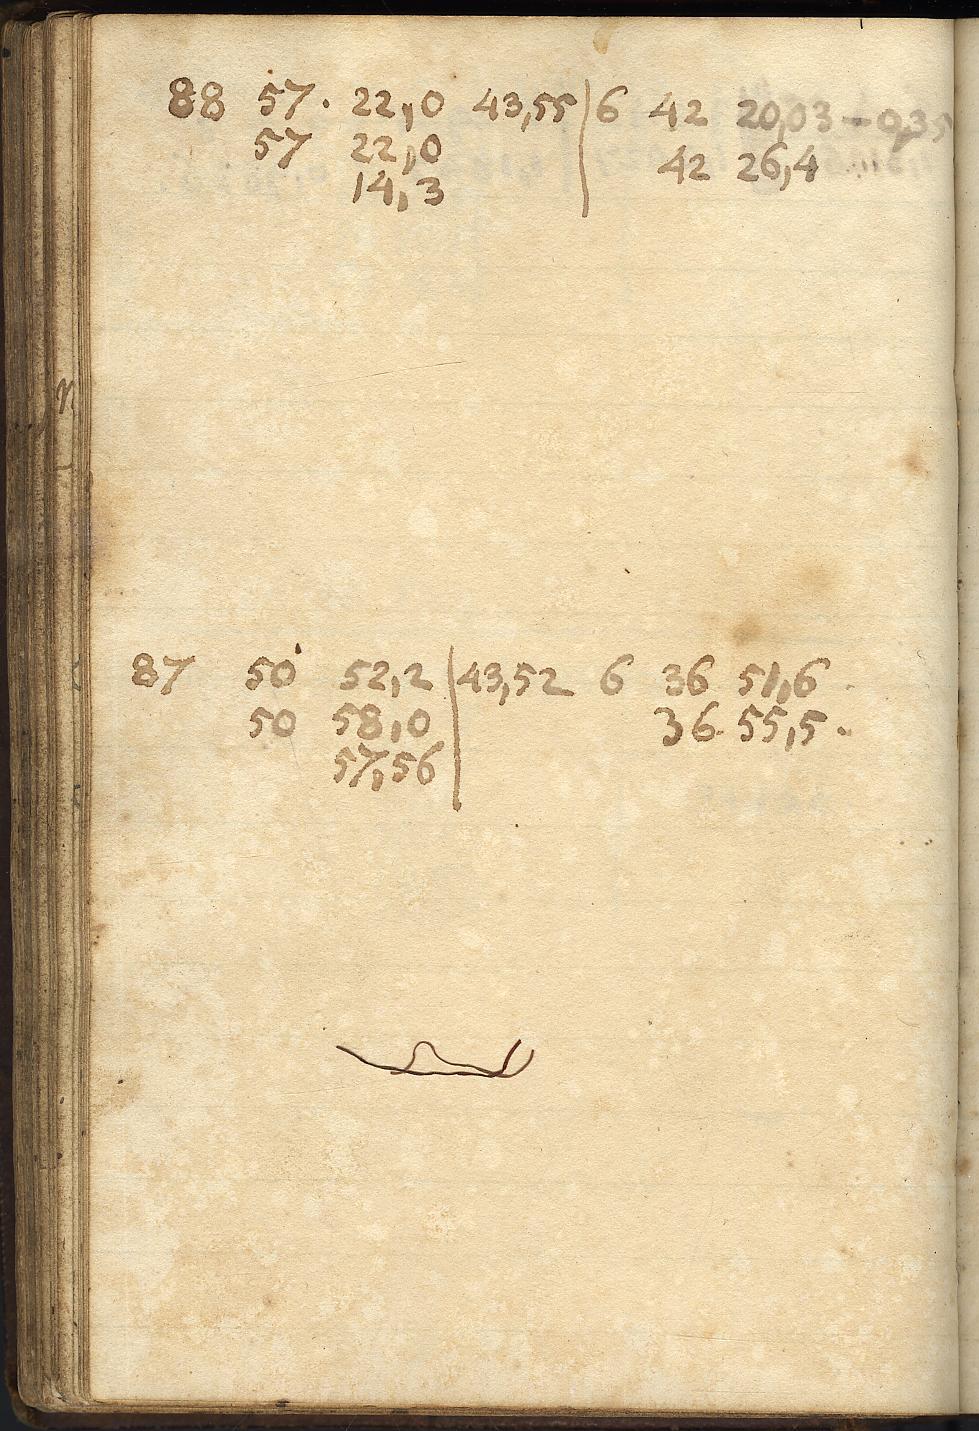 88 57. 22,0 43,55 | 6 42 20,03 – 0,35
57 22,0 42 26,4
14,3
87 50 52,2 | 43,52 6 36 51,6
50 58,0 36. 55,5.
57,56